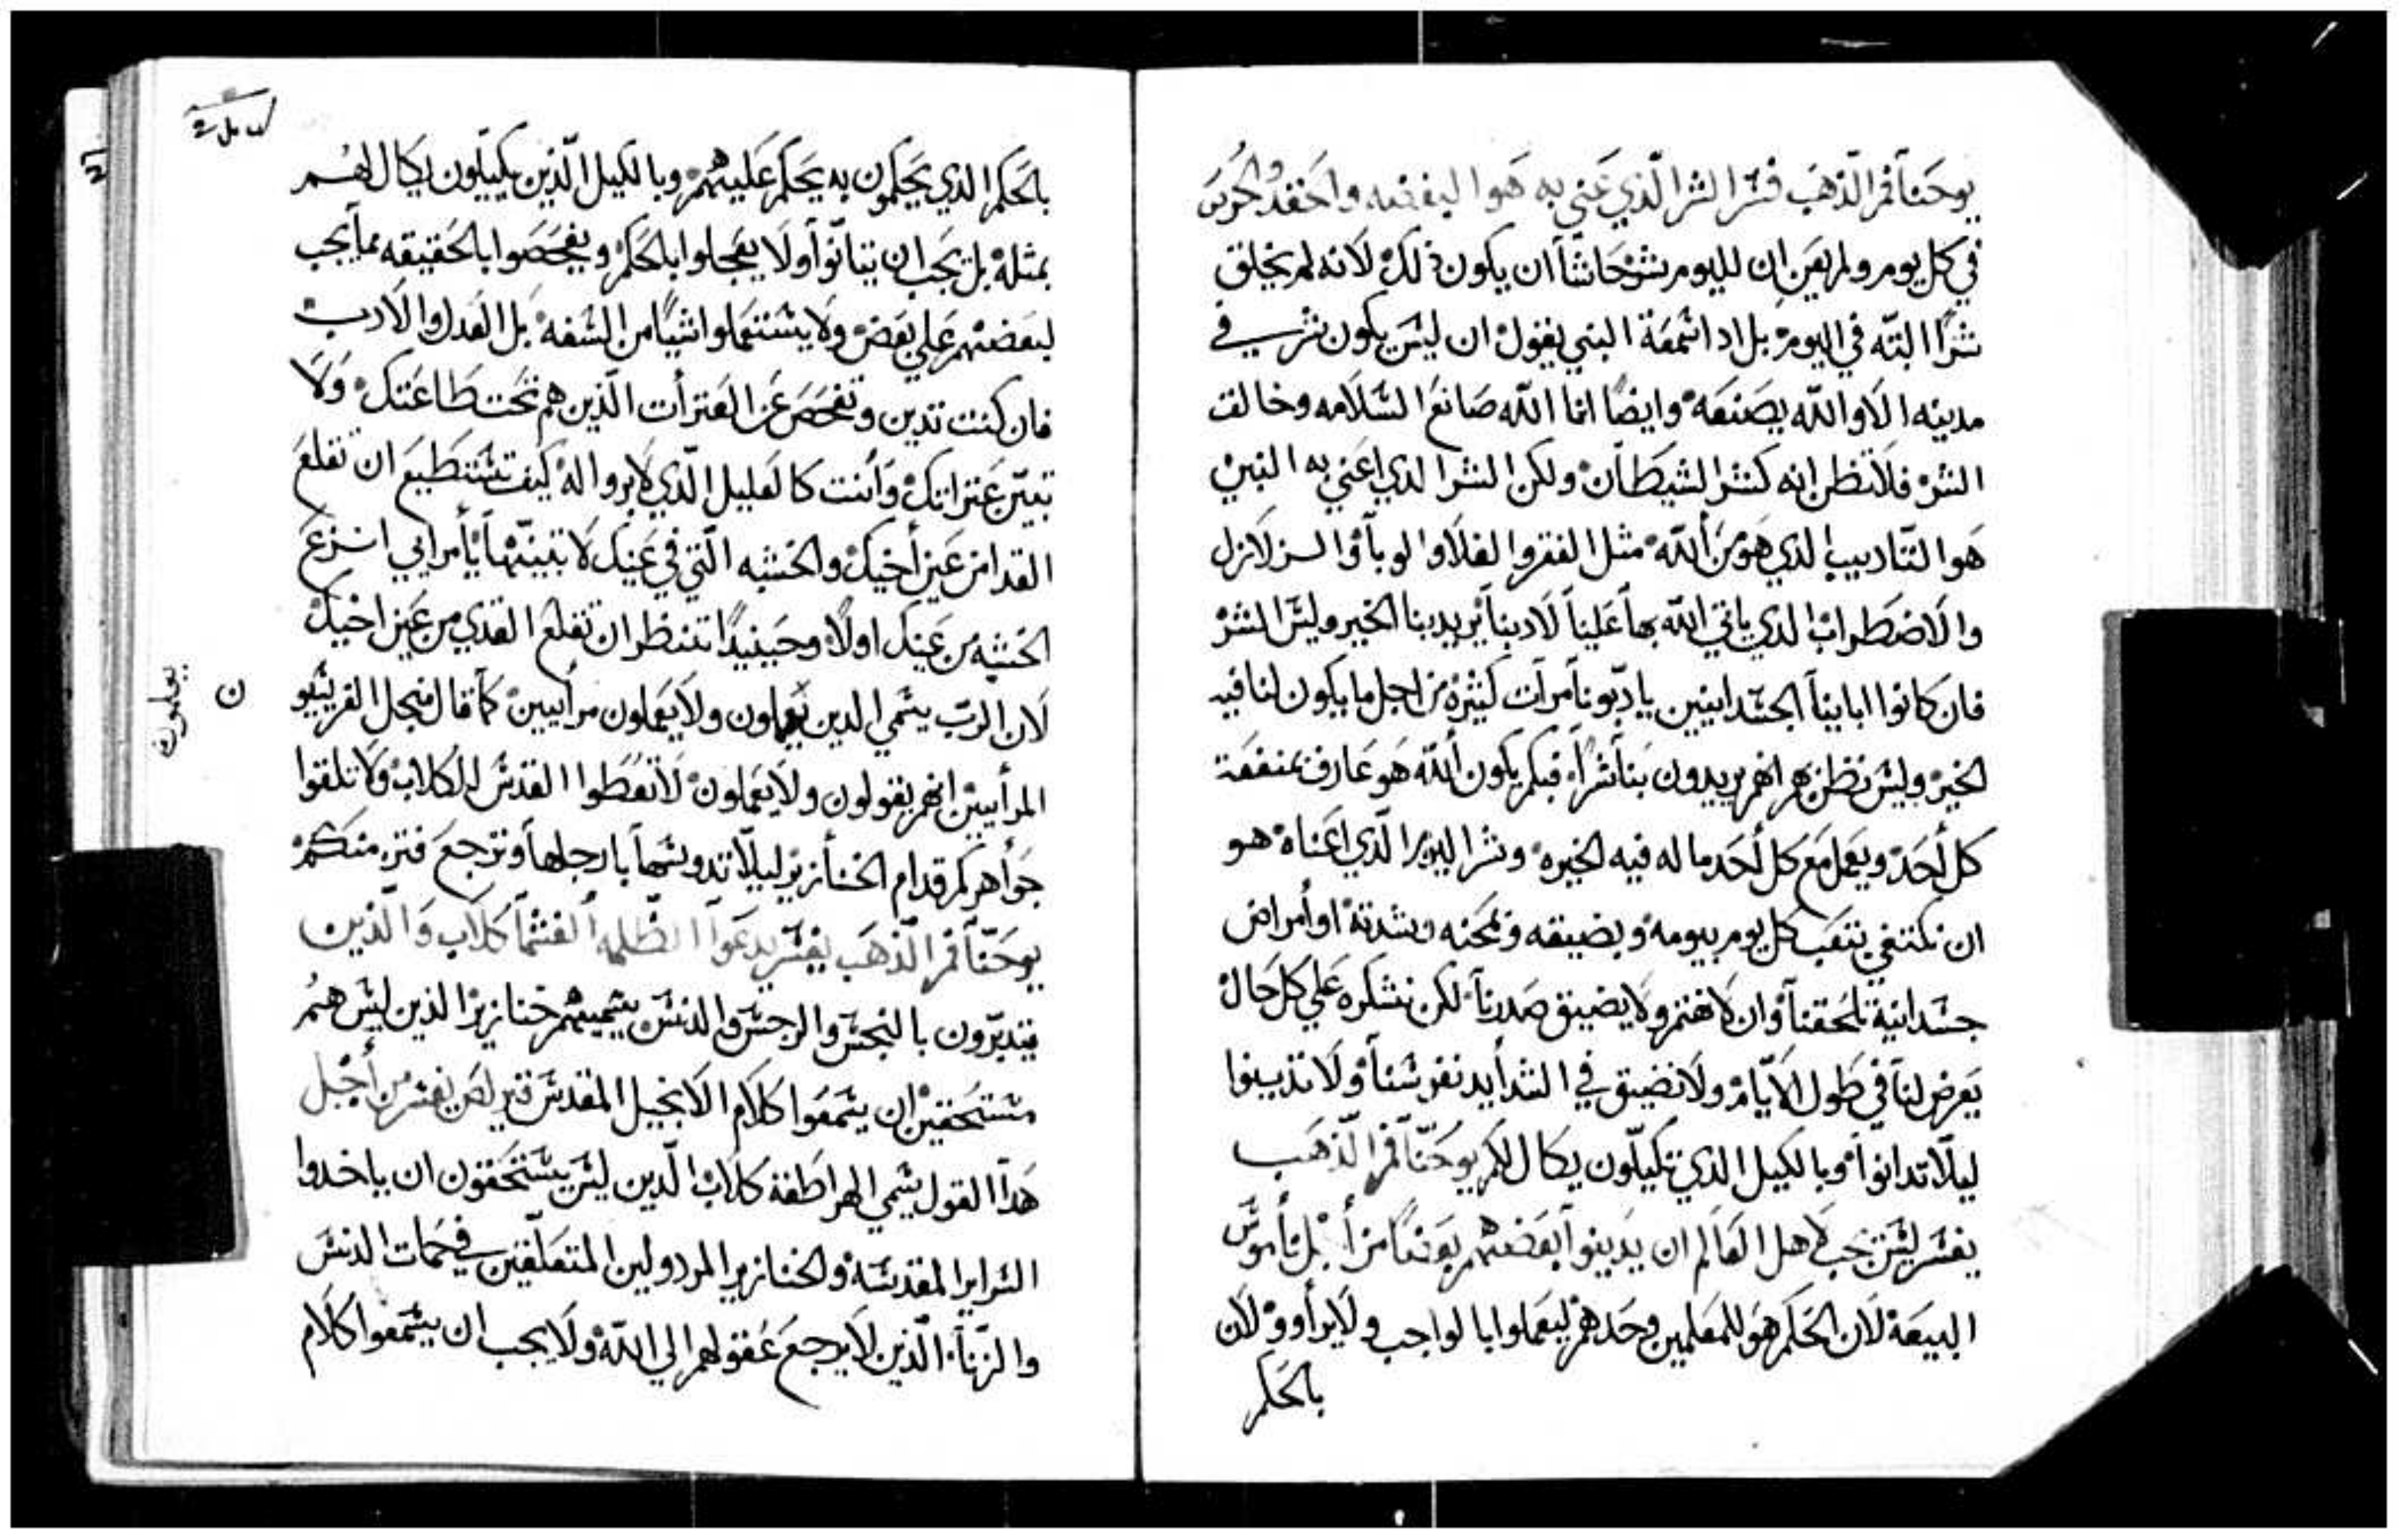 يوحَنا فم الذهَب فسر الشر الذي عَني به هَوا
في كل يوم ولم يعَن ان لليوم شر حَاشا ان يكون ذلك لانه لم يخلق
شرًا البته في اليوم بل اد اسمعَة النبي يقول ان ليسَ يكون شر في
مدينه الا والله يصَنعَه وايضًا انا الله صَانعَ السَلامه وخالق
الشر فلا تظن انه كشر الشيطان ولكن الشر الدي اعَني به النبي
هَوا التاديب الدي هَو من الله مثل الفقر والغلا والوبا والزلازل
والاضطراب الدي ياتي الله بها عَلينا لادبنا يريد بنا الخير وليسَ الشر
فان كانوا اباينا الجسَدانيين يادبونا مرات كثيرة من اجل ما يكون لنا فيه
الخير وليسَ نظن بهم انهم يريدون بنا شرا فبكم يكون الله هَو عَارف بمنفعَة
كل أحَد ويعَمل معَ كل أحَد ما له فيه الخيره وشر اليوم الذي اعَناه هو
ان نكتفي بتعَب كل يوم بيومه وبضيقه ومحَنه وشدته او أمراض
جسَدانية تلحَقنا وان لا نهتم ولا يضيق صَدرنا لكن نشكره عَلي كل حَال
يعَرض لنا في طول الايام ولا نضيق في الشدايد نفوسَنا ولا تدينوا
ليلا تدانوا وبالكيل الذي تكيلون يكال لكم يوحَنا فم الذهَب
يفسَر ليسَ يجب لاهل العَالم ان يدينوا بعَضهم بعَضًا من أجل نامُوسَ
البيعَة لان الحَكم هَو للمعَلمين وحَدهم ليعَملوا بالواجب ولا يراووا لان
بالحَكم
بالحَكم الذي يحَكمون به يحَكم عَليهم وبالكيل الذين يكيلون يكال لهم
بمثله بل يجب ان يتانوا ولا يعَجلوا بالحَكم ويفحَصَوا بالحَقيقه بما يجب
لبعَضهم عَلي بعَض ولا يسَتعَملوا شيًا من السَفه بل العَدل والادب
فان كنت تدين وتفحَصَ عَن العَثرات الذين هم تحَت طاعَتك ولا
تعَير عَثراتك وأنت كالعَليل الذي لا يروا له كيف تسَتطيعَ ان تقلعَ
القدا من عَين أخيك والخشبه التي في عَينك لا تبينها يأمرايي انزعَ
الخشبه من عَينك اولا وحَينيدًا تنظر ان تقلعَ القدي من عَين اخيك
لان الرب يسَمي الدين يعلمون ولا يعَملون مرأيين كما قال من اجل الفريسَيو
ن
يعلمون
المرأيين انهم يقولون ولا يعَملون لا تعَطوا القدسَ للكلاب ولا تلقوا
جَواهركم قدام الخنازير ليلا تدوسَها بارجلها وترجعَ فتزمنكم
يوحَنا فم الذهَب يفسَر يدعَوا الظلمه الغشما كلاب وَالذين
يتدبرون بالنجسَ والرجسَ والدنسَ يسَميهم خنازير الذين ليسَ همُ
مسَتحَقين ان يسَمعَوا كلام الانجيل المقدسَ قيرلصَ يفسَر من أجل
هَدا القول يسَمي الهراطقة كلاب الدين ليسَ يسَتحَقون ان ياخدوا
السَراير المقدسَة والخنازير المردولين المتعَلقين في حَمات الدنسَ
والزناة الذين لا يرجعَ عَقولهم الي الله ولا يجب ان يسَمعَوا كلام